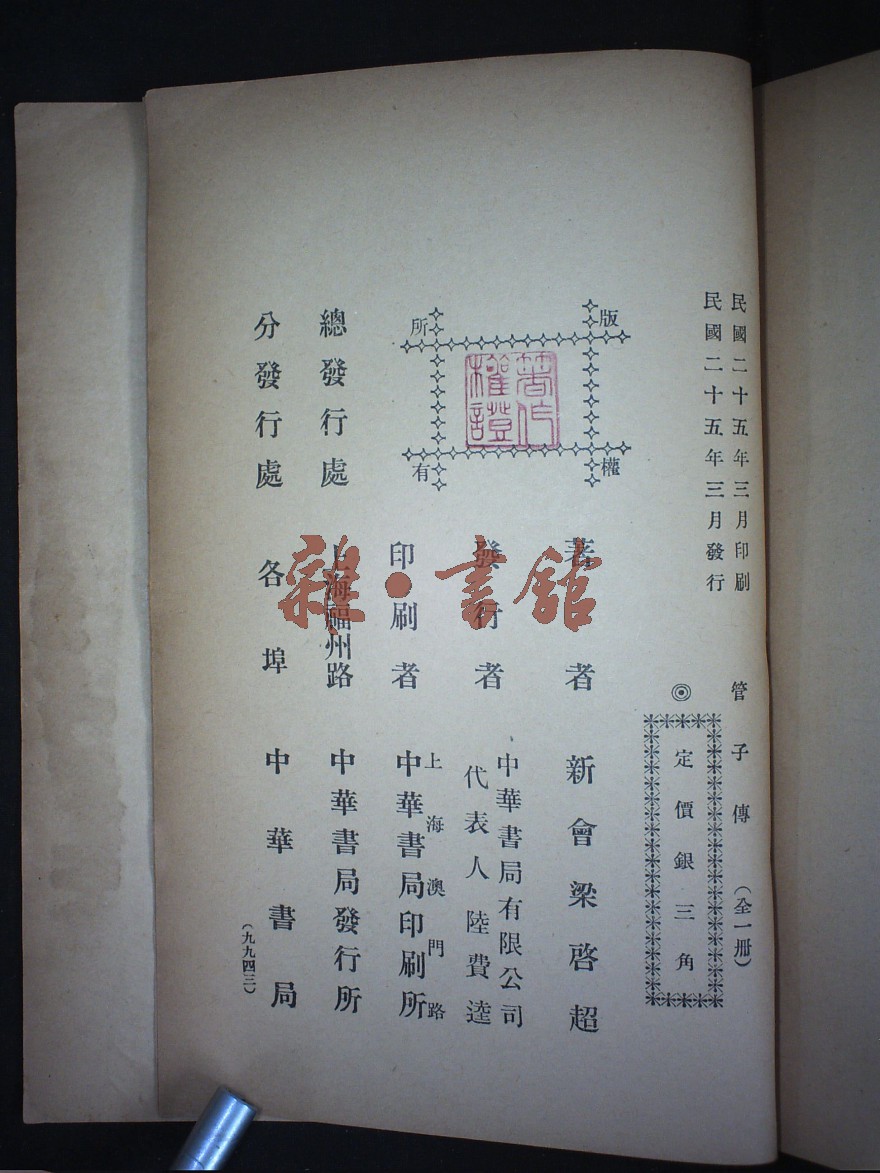 民國二十五年三月印刷
民國二十五年三月發行
管子傳（全一册）
◎
定價銀三角
版權所有
著作權證
著者 新會梁啓超
發行者 中華書局有限公司
代表人陸費逵
印刷者 上海澳門路
中華書局印刷所
總發行處 上海福州路 中華書局發行所
分發行處 各埠 中華書局
（九九四三）
雜·書館